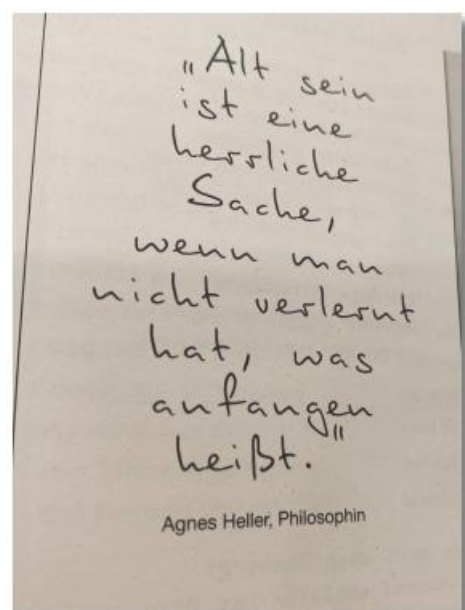 „Alt sein
ist eine
herrliche
Sache,
wenn man
nicht verlernt
hat, was
anfangen
heißt."
Agnes Heller, Philosophin